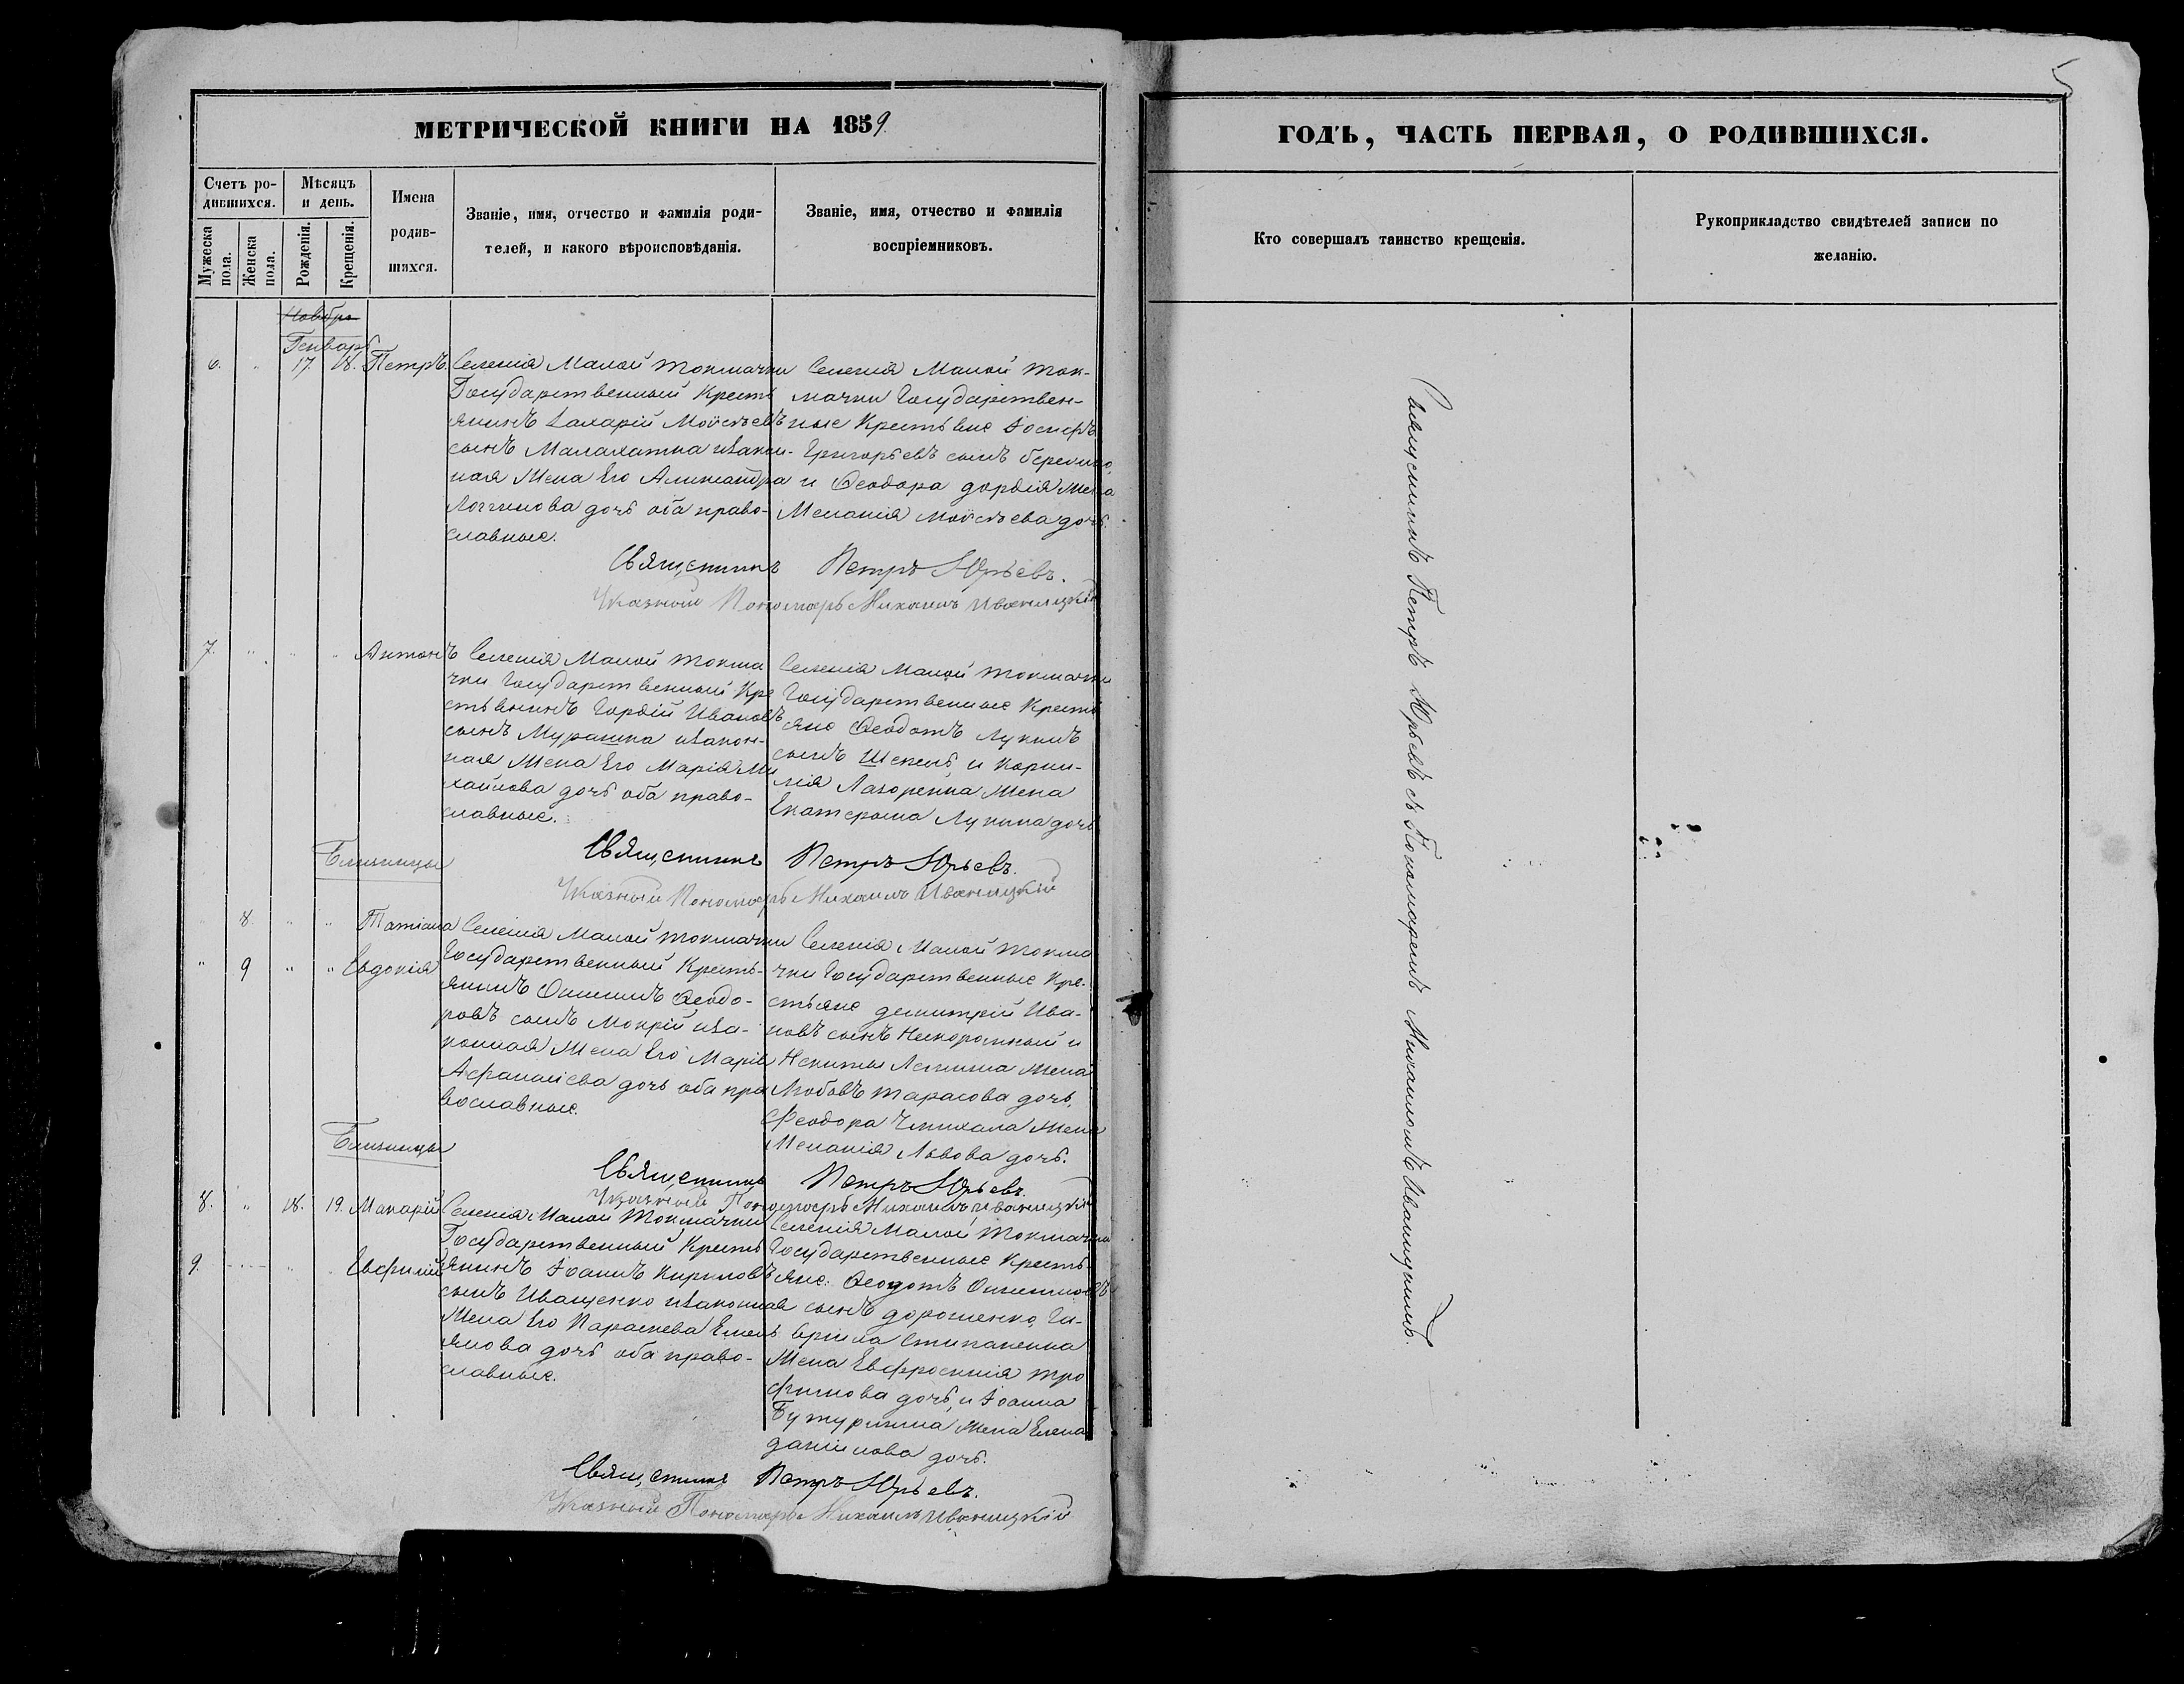 МЕТРИЧЕСКОЙ КНИГИ НА 1859
Счетъ ро-
дившихся.
Мѣсяцъ
и день.
Имена
родив-
шихся.
Званіе, имя, отчество и фамилія роди-
телей, и какого вѣроисповѣданія.
Званіе, имя, отчество и фамилія
воспріемниковъ.
Мужеска
пола.
Женска
пола.
Рожденія.
Крещенія.
Ноябрь
Генварь
6. " 17. 18. Петръ.
Селенія Малой Токмачки
Государственный Кресть
янинъ Захарій Моѵсѣевъ
сынъ Малахатка изакон-
ная Жена Его Александра
Логгинова дочь оба право-
славные.
Селенія Малой Ток-
мачки Государствен-
ные Крестьяне Іосифъ
Григорьевъ сынъ
и Ѳеодора Гордія Жена
Меланія Моѵсѣева дочь.
Священникъ Петръ Юрьевъ.
Указный Пономарь Михаилъ Иваницкій
7. " " " Антонъ
Селенія Малой Токма
чки Государственный Кре
стьянинъ Гордій Ивановъ
сынъ Мурашка изакон-
ная Жена Его Марія Ми
хайлова дочь оба право-
славные.
Селенія Малой Токмачки
Государственные Кресть
яне Ѳеодотъ Лукинъ
сынъ Шекель, и Корни-
лія Лазоренка Жена
Екатерина Лукина дочь
Священникъ Петръ Юрьевъ.
Указный Пономарь Михаилъ Иваницкій
Близницы
" 8. " " Татіана
" 9 " " Евдокія
Селенія Малой Токмачки
Государственный Кресть-
янинъ Онисимъ Ѳеодо-
ровъ сынъ Мокрій иза-
конная Жена Его Марія
Афанасіева дочь оба пра
вославные.
Селенія Малой Токма
чки Государственные Кре-
стьяне Димитрій Ива-
новъ сынъ Нескоромный и
Никиты Жена
Любовь Тарасова дочь,
Феодора Чмихала Жена
Меланія Львова дочь.
Священникъ Петръ Юрьевъ.
Указный Пономарь Михаилъ Иваницкій
Близницы
8. " 18. 19. Макарій
9. Евфимій
Селенія Малой Токмачки
Государственный Кресть
янинъ Іоанъ Кириловъ
сынъ Иващенко изаконная
Жена Его Параскева Емель
янова дочь оба право-
славные.
Селенія Малой Токмачки
Государственные Кресть-
яне: Ѳеодотъ Онисимовъ
сынъ Дорошенко, Га-
вріила Степаненка
Жена Евфросинія Тро
фимова дочь, и Іоанна
Бутурина Жена Елена
Даніилова дочь.
Священникъ Петръ Юрьевъ.
Указный Пономарь Михаилъ Иваницкій
5
ГОДЪ, ЧАСТЬ ПЕРВАЯ, О РОДИВШИХСЯ.
Кто совершалъ таинство крещенія.
Рукоприкладство свидѣтелей записи по
желанію.
Священникъ Петръ Юрьевъ съ Пономаремъ Михаиломъ Иваницкимъ.